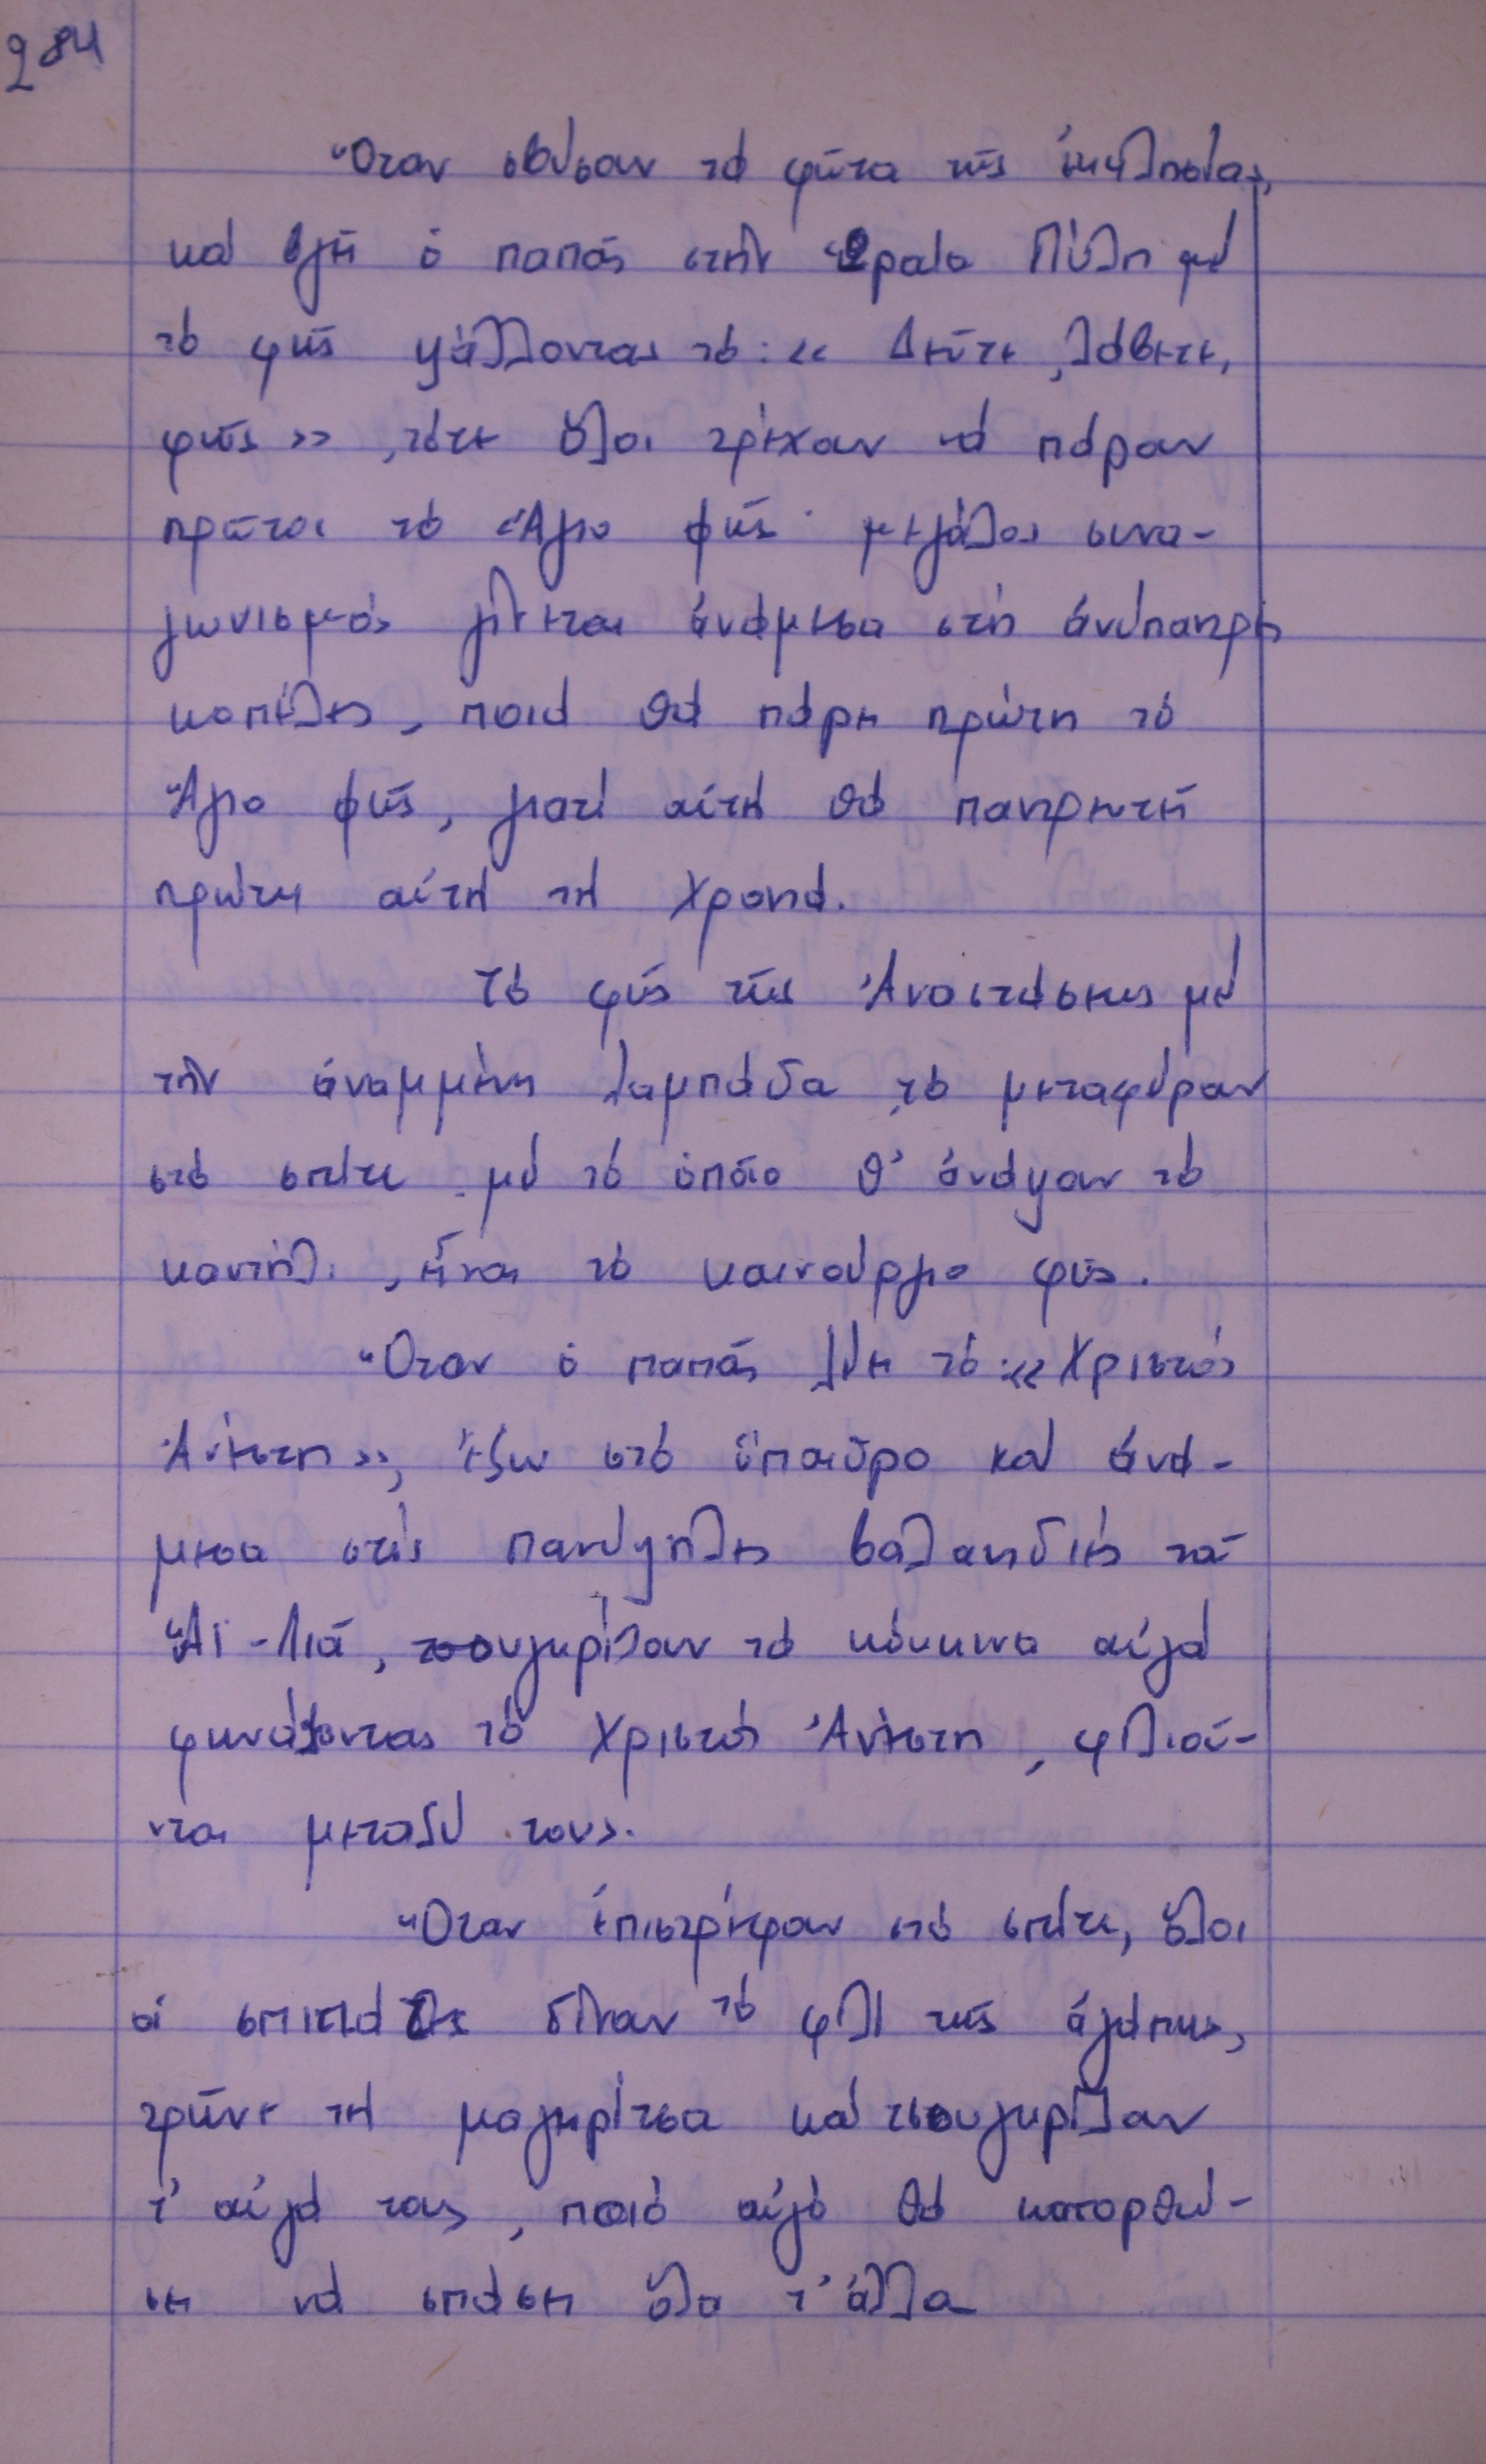 284
Ὅταν σβύσουν τά φῶτα τῆς ἐκκλησίας,
καί βγῆ ὁ παπάς στήν Ὡραία Πύλη μέ
τό φῶς ψάλλοντας τό: « Δεῦτε, λάβετε,
φῶς », τότε ὅλοι τρέχουν νά πάρουν
πρῶτοι τό Ἅγιο φῶς· μεγάλος συνα-
γωνισμός γίνεται ἀνάμεσα στίς ἀνύπαντρες
κοπέλες, ποιά θά πάρη πρώτη τό
Ἅγιο φῶς, γιατί αὐτή θά παντρευτῆ
πρώτη αὐτή τή χρονιά.
Τό φῶς τῆς Ἀναστάσεως μέ
τήν ἀναμμένη λαμπάδα, τό μεταφέρουν
στό σπίτι μέ τό ὁποῖο θ' ἀνάψουν τό
καντήλι, εἶναι τό καινούργιο φῶς.
Ὅταν ὁ παπάς λέη τό: « Χριστός
Ἀνέστη », ἔξω στό ὕπαιθρο καί ἀνά-
μεσα στίς πανύψηλες βαλανιδιές τοῦ
Ἅϊ-Λιᾶ, τσουγκρίζουν τά κόκκινα αὐγά
φωνάζοντας τό Χριστός Ἀνέστη, φιλιοῦ-
νται μεταξύ τους.
Ὅταν ἐπιστρέφουν στό σπίτι, ὅλοι
οἱ σπιτιάτες δίνουν τό φιλί τῆς ἀγάπης,
τρῶνε τή μαγειρίτσα καί τσουγκρίζουν
τ' αὐγά τους, ποιό αὐγό θά κατορθώ-
ση νά σπάση ὅλα τ' ἄλλα